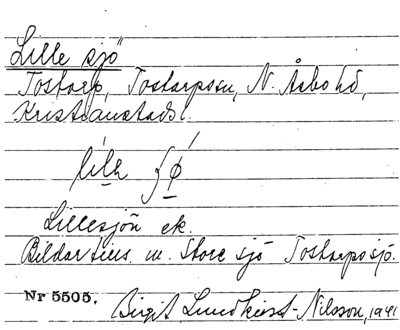 Lille sjö
Tostarp, Tostarpssn, N. Åsbo hd,
Kristianstads l.
lilə ʃǿ
Lillesjön ek.
Bildar tills. m. Store sjö Tostarpssjö.
Nr 5505. Birgit Lundkvist-Nilsson, 1941